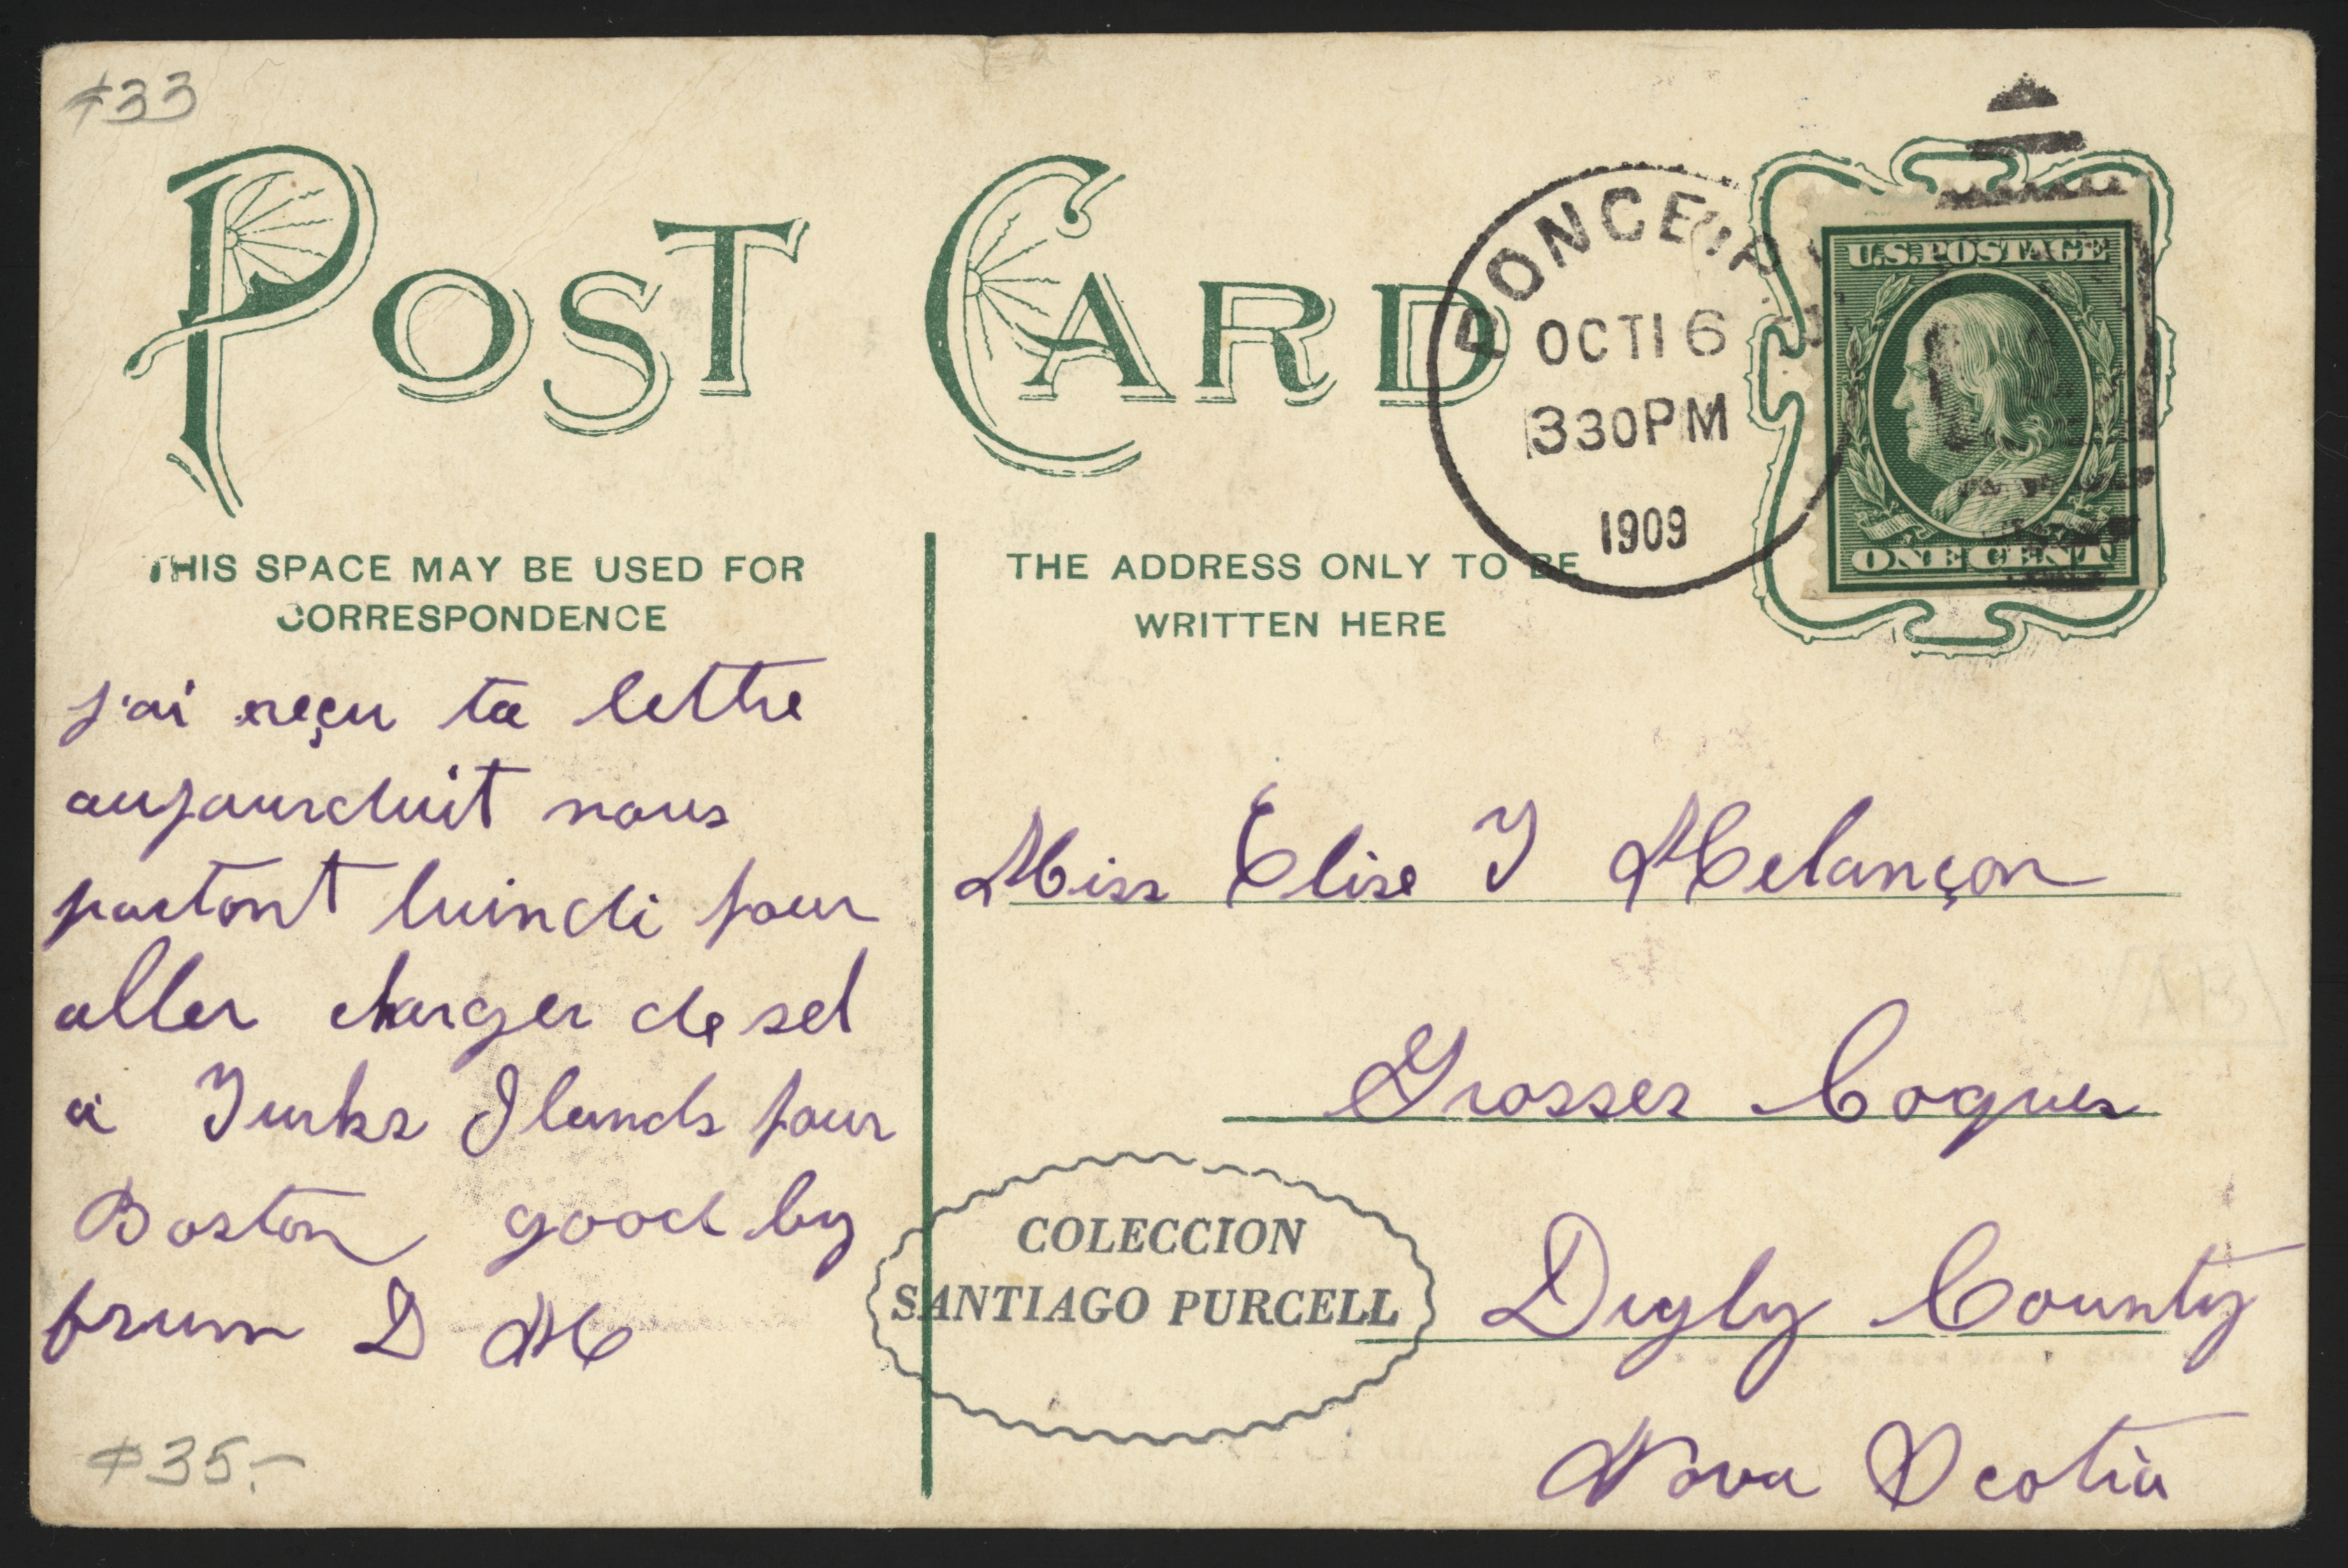 $33
POST CARD
PONCE, P.R.
OCT 16
330PM
1909
U.S. POSTAGE
ONE CENT
THIS SPACE MAY BE USED FOR
CORRESPONDENCE
THE ADDRESS ONLY TO BE
WRITTEN HERE
j'ai reçu ta lettre
aujourduit nous
partont luindi pour
aller charger de sel
a Turks Ilands pour
Boston good by
frum D M
Miss Elise J Melançon
Grosses Coques
Digby County
Nova Scotia
COLECCION
SANTIAGO PURCELL
$35.-